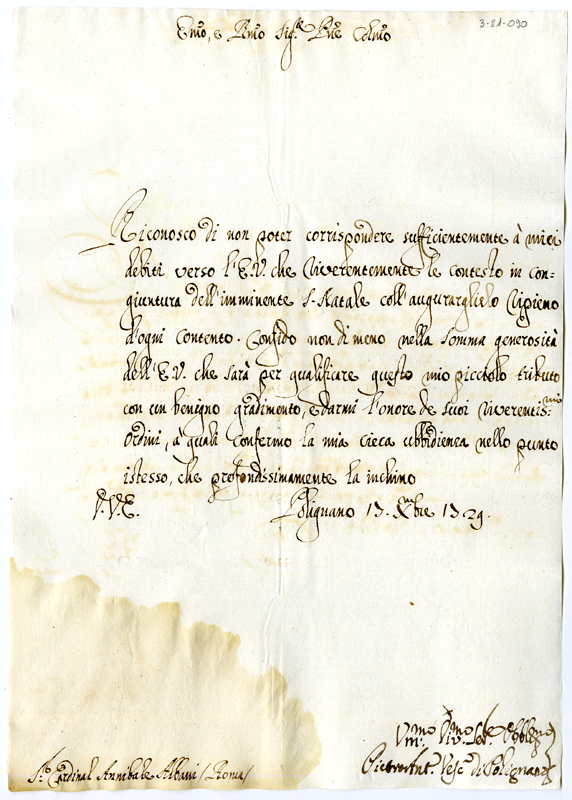 3-21-090
Emo, e Rmo Sig.r Pne Colmo
Riconosco di non poter corrispondere sufficientemente à miei
debiti verso l'E.V. che riverentemente le contesto in con=
giuntura dell'imminente S. Natale coll'augurarglielo ripieno
d'ogni contento. Confido non di meno nella somma generosità
dell'E.V. che sarà per qualificare questo mio picciolo tributo
con un benigno gradimento, e darmi l'onore de suoi riveritis:mi
ordini, à quali confermo la mia cieca ubbidienza nello punto
istesso, che profondissimamente la inchino
D.V.E.
Polignano 13. Xmbre 1729.
Vmmo Divmo Set.re Obblgmo
Pietrant.o Vesc.o di Polignano
S.r Cardinal Annibale Albani / Roma /